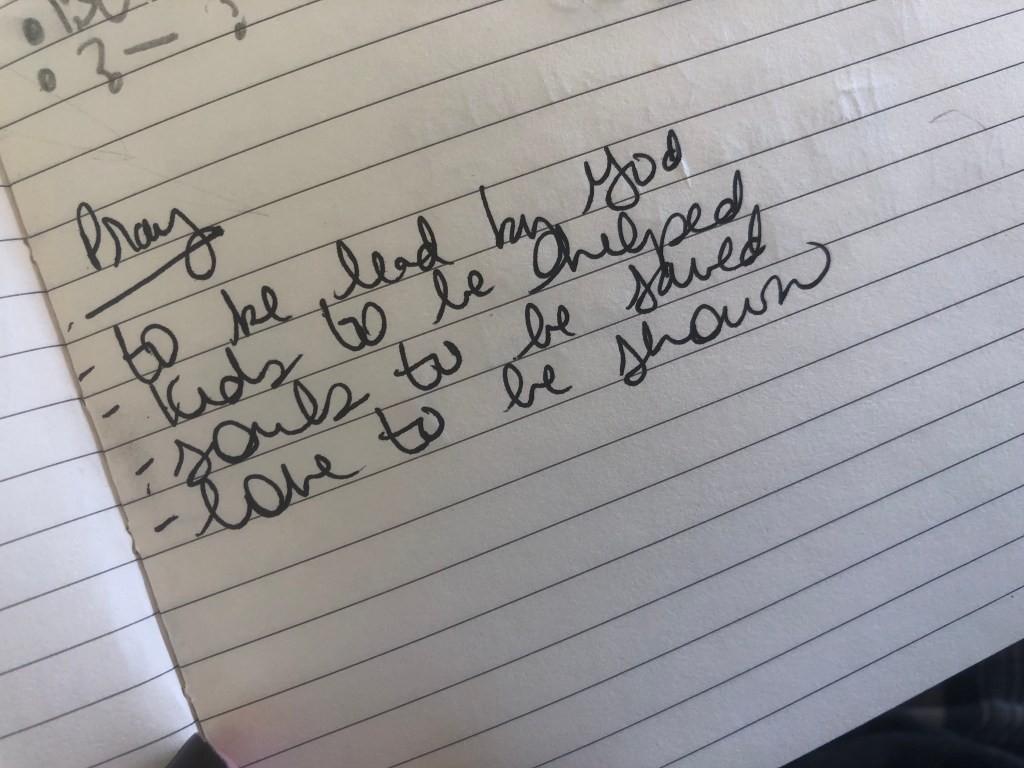 Pray
- to be lead by God
- Kids to be helped
- souls to be saved
- love to be shown